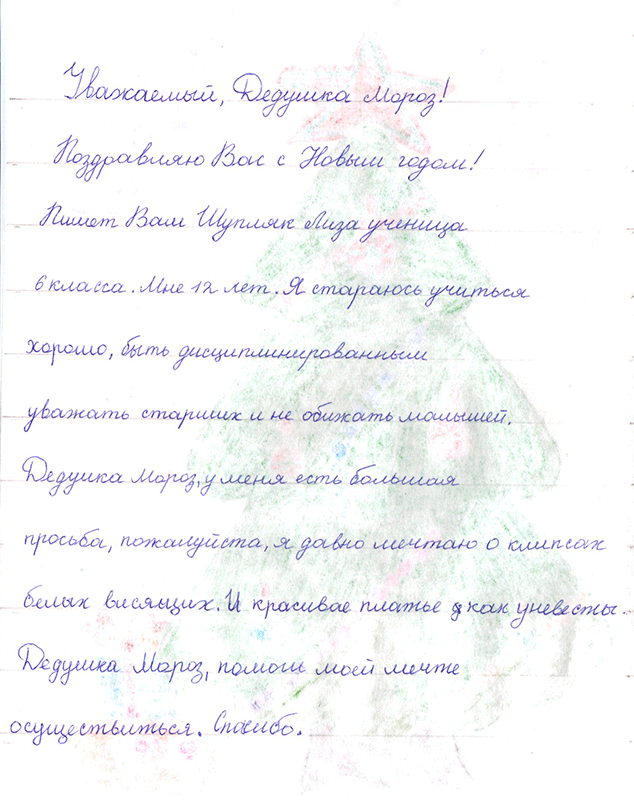 Уважаемый, Дедушка Мороз!
Поздравляю Вас с Новым годом!
Пишет Вам Шупляк Лиза ученица
6 класса. Мне 12 лет. Я стараюсь учиться
хорошо, быть дисциплинированным
уважать старших и не обижать малышей.
Дедушка Мороз, у меня есть большая
просьба, пожалуйста, я давно мечтаю о клипсах
белых висящих. И красивае платье как уневесты.
Дедушка Мороз, помоги моей мечте
осуществиться. Спасибо.